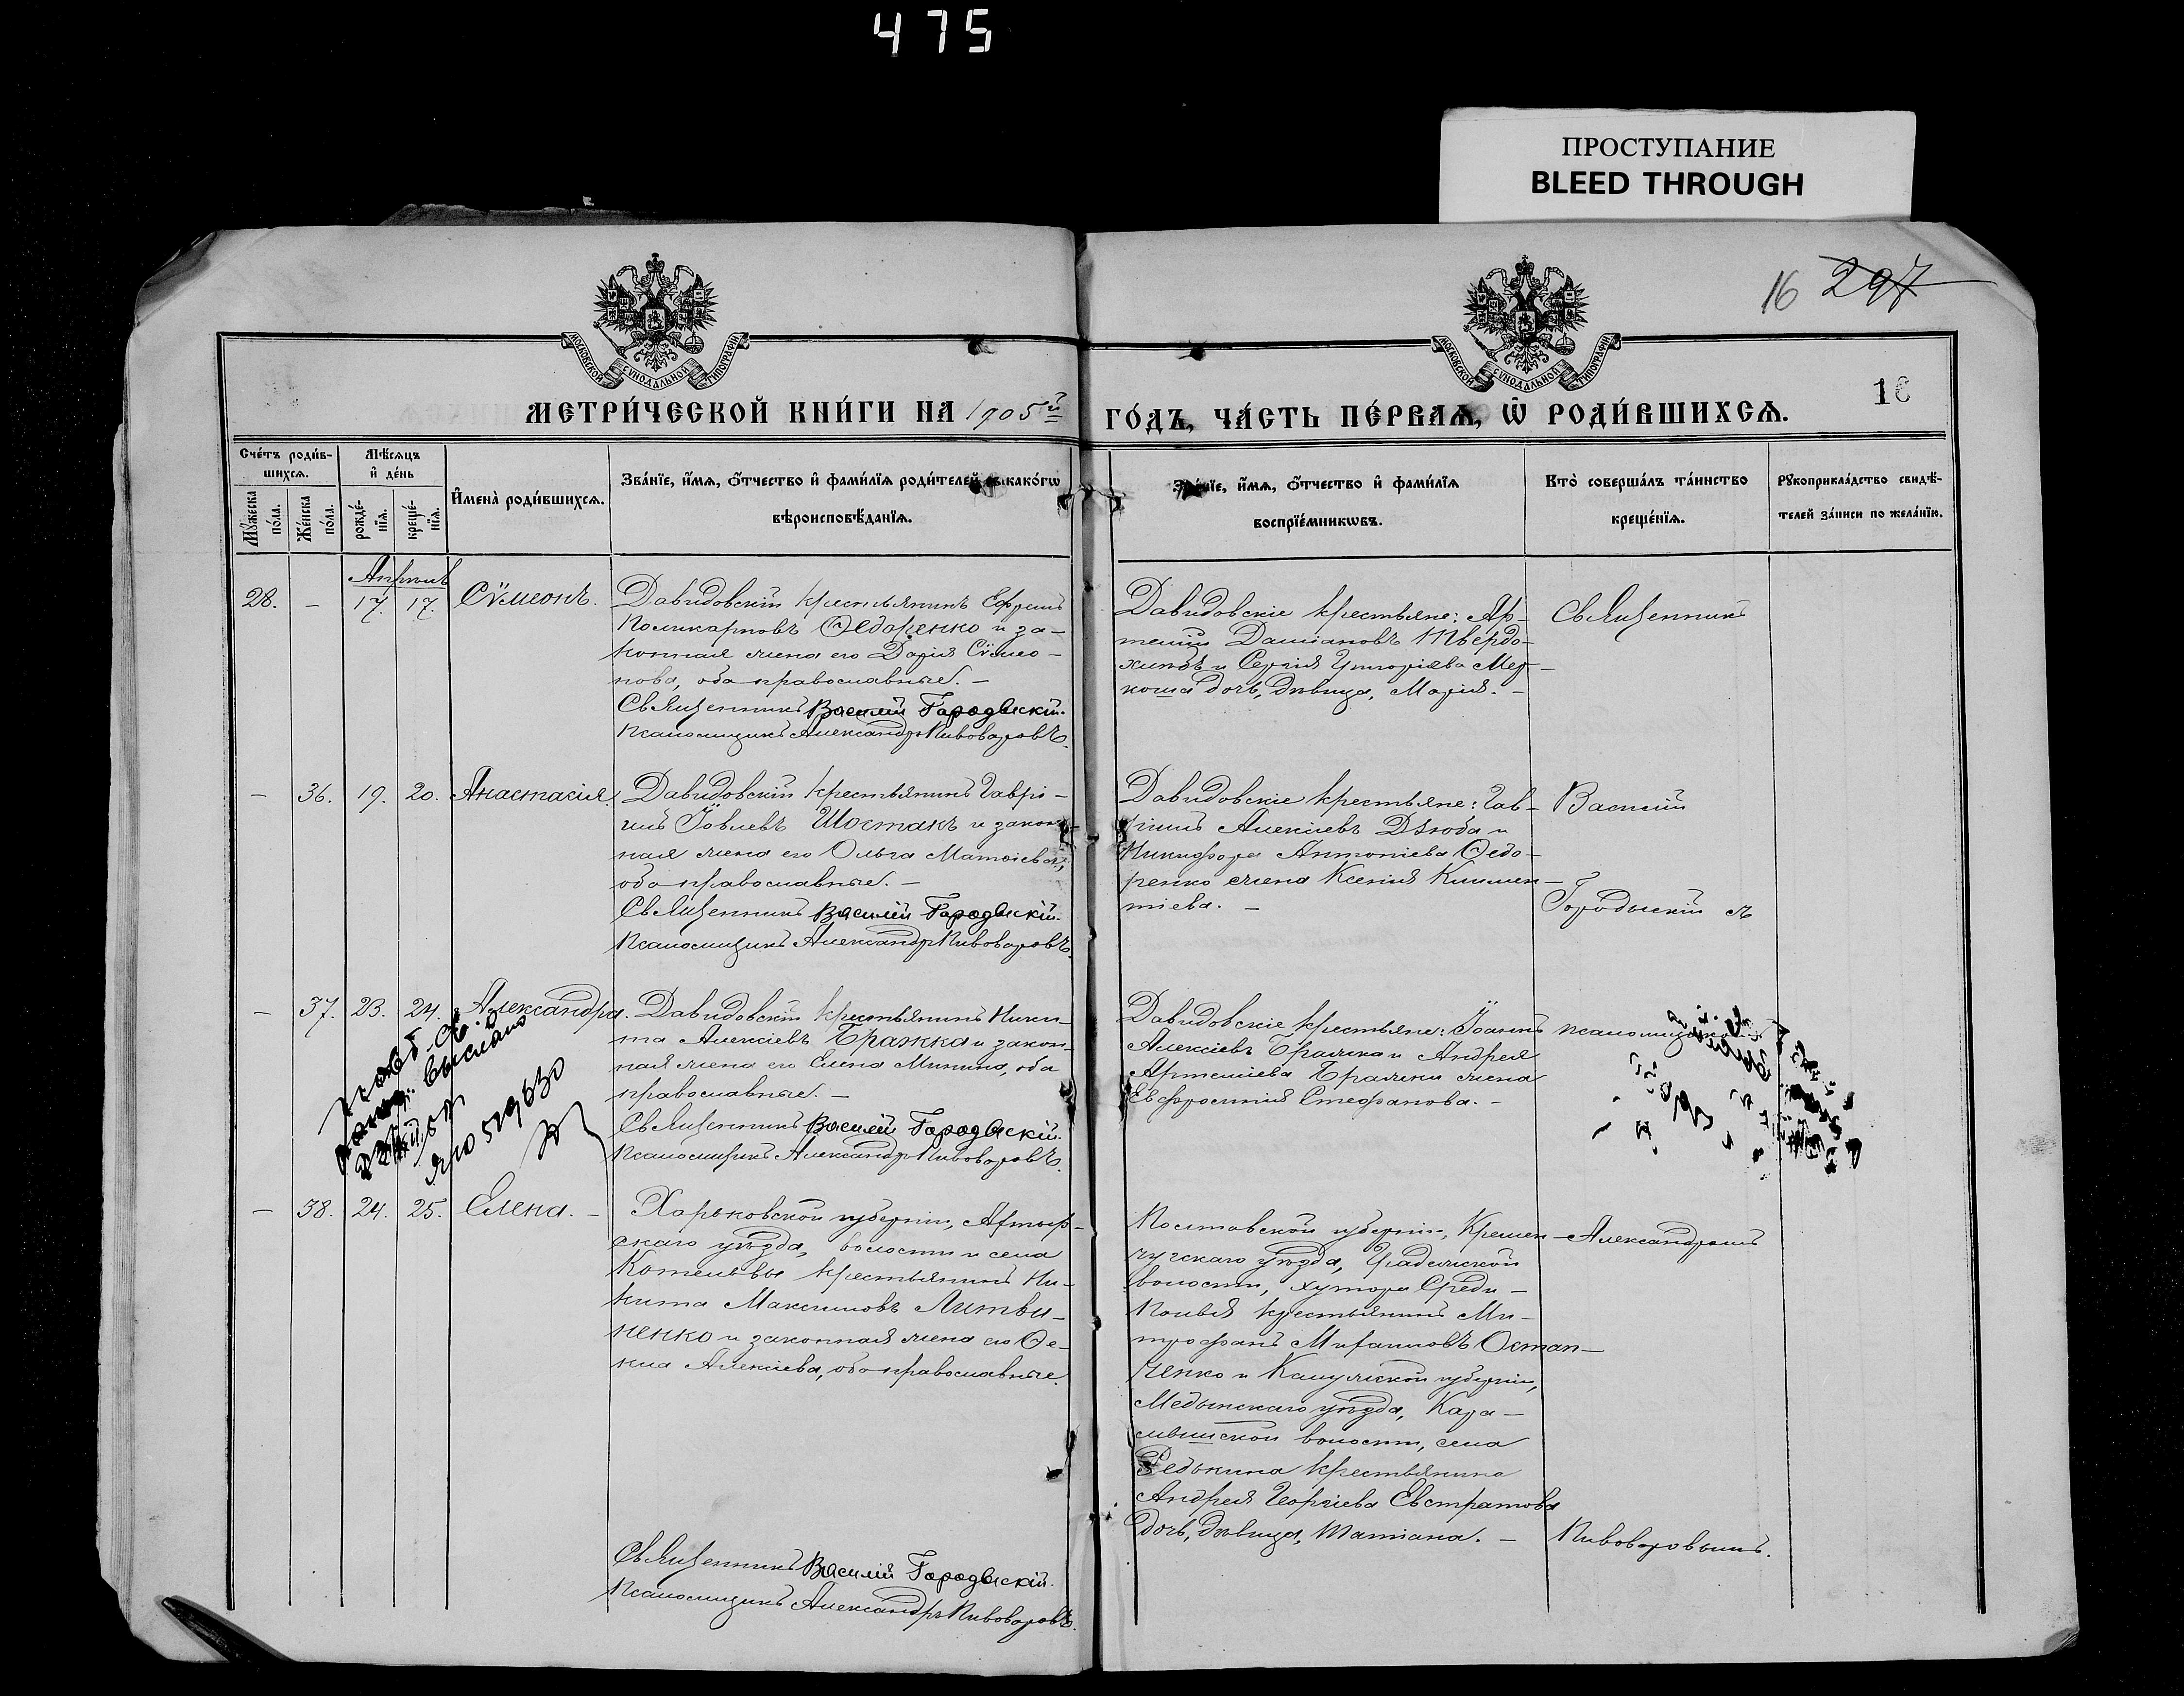 475
ПРОСТУПАНИЕ
BLEED THROUGH
16 297
МОСКОВСКОЙ СѴНОДАЛЬНОЙ ТИПОГРАФІИ
МОСКОВСКОЙ СѴНОДАЛЬНОЙ ТИПОГРАФІИ
16
МЕТРИ́ЧЕСКОЙ КНИ́ГИ НА 1905й
ГО́ДЪ, ЧА́СТЬ ПЕ́РВАѦ, Ѡ҆ РОДИ́ВШИХСѦ.
Сче́тъ роди́в-
шихсѧ.
Мѣ́сѧцъ
и҆ де́нь
Мꙋ́жеска по́ла.
Же́нска по́ла.
рожде́-
нїѧ.
креще́-
нїѧ.
И҆мена̀ роди́вшихсѧ.
Зва́нїе, и҆́мѧ, ѻ҆́тчество и҆ фами́лїѧ роди́телей, и҆ како́гѡ
вѣроисповѣ́данїѧ.
Зва́нїе, и҆́мѧ, ѻ҆́тчество и҆ фами́лїѧ
воспрїе́мникѡвъ.
Кто̀ соверша́лъ та́инство
креще́нїѧ.
Рꙋкоприкла́дство свидѣ́-
телей за́писи по жела́нїю.
Апрѣль
28. – 17. 17. Сѵмеонъ.
Давидовскій крестьянинъ Ефремъ
Поликарповъ Ѳедоренко и за-
конная жена его Дарія Сѵмео-
нова, оба православные. –
Священникъ Василій Городыскій.
Псаломщикъ Александръ Пивоваровъ.
Давидовскіе крестьяне: Ар-
темій Даміановъ Твердо-
хлѣбъ и Сергія Григоріева Мер-
коша дочь, дѣвица, Марія. –
Священникъ
– 36. 19. 20. Анастасія
Давидовскій крестьянинъ Гаврі-
илъ Іовлевъ Шостакъ и закон-
ная жена его Ольга Матѳіева,
оба православные. –
Священникъ Василій Городыскій.
Псаломщикъ Александръ Пивоваровъ.
Давидовскіе крестьяне: Гав-
ріилъ Алексіевъ Дзюба и
Никифора Антоніева Ѳедо-
ренко жена Ксенія Климен-
тіева. –
Василій
Городыскій съ
– 37. 23. 24. Александра.
Давидовскій крестьянинъ Ники-
та Алексіевъ Бражка и закон-
ная жена его Елена Минина, оба
православные. –
Священникъ Василій Городыскій.
Псаломщикъ Александръ Пивоваровъ.
Давидовскіе крестьяне: Іоаннъ
Алексіевъ Бражка и Андрея
Артеміева Бражки жена
Евфросинія Стефанова. –
псаломщикомъ
выслано
529630
– 38. 24. 25. Елена. –
Харьковской губерніи, Ахтыр-
скаго уѣзда, волости и села
Котельвы крестьянинъ Ни-
кита Максимовъ Литви-
ненко и законная жена его Ѳе-
кла Алексіева, оба православные.
Священникъ Василій Городыскій.
Псаломщикъ Александръ Пивоваровъ.
Полтавской губерніи, Кремен-
чугскаго уѣзда, Градижской
волости, хутора Среди-
полья крестьянинъ Ми-
трофанъ Михаиловъ Остап-
ченко и Калужской губерніи,
Медынскаго уѣзда, Кара-
мышской волости, села
Редькина крестьянина
Андрея Георгіева Евстратова
дочь, дѣвица, Татіана. –
Александромъ
Пивоваровымъ.